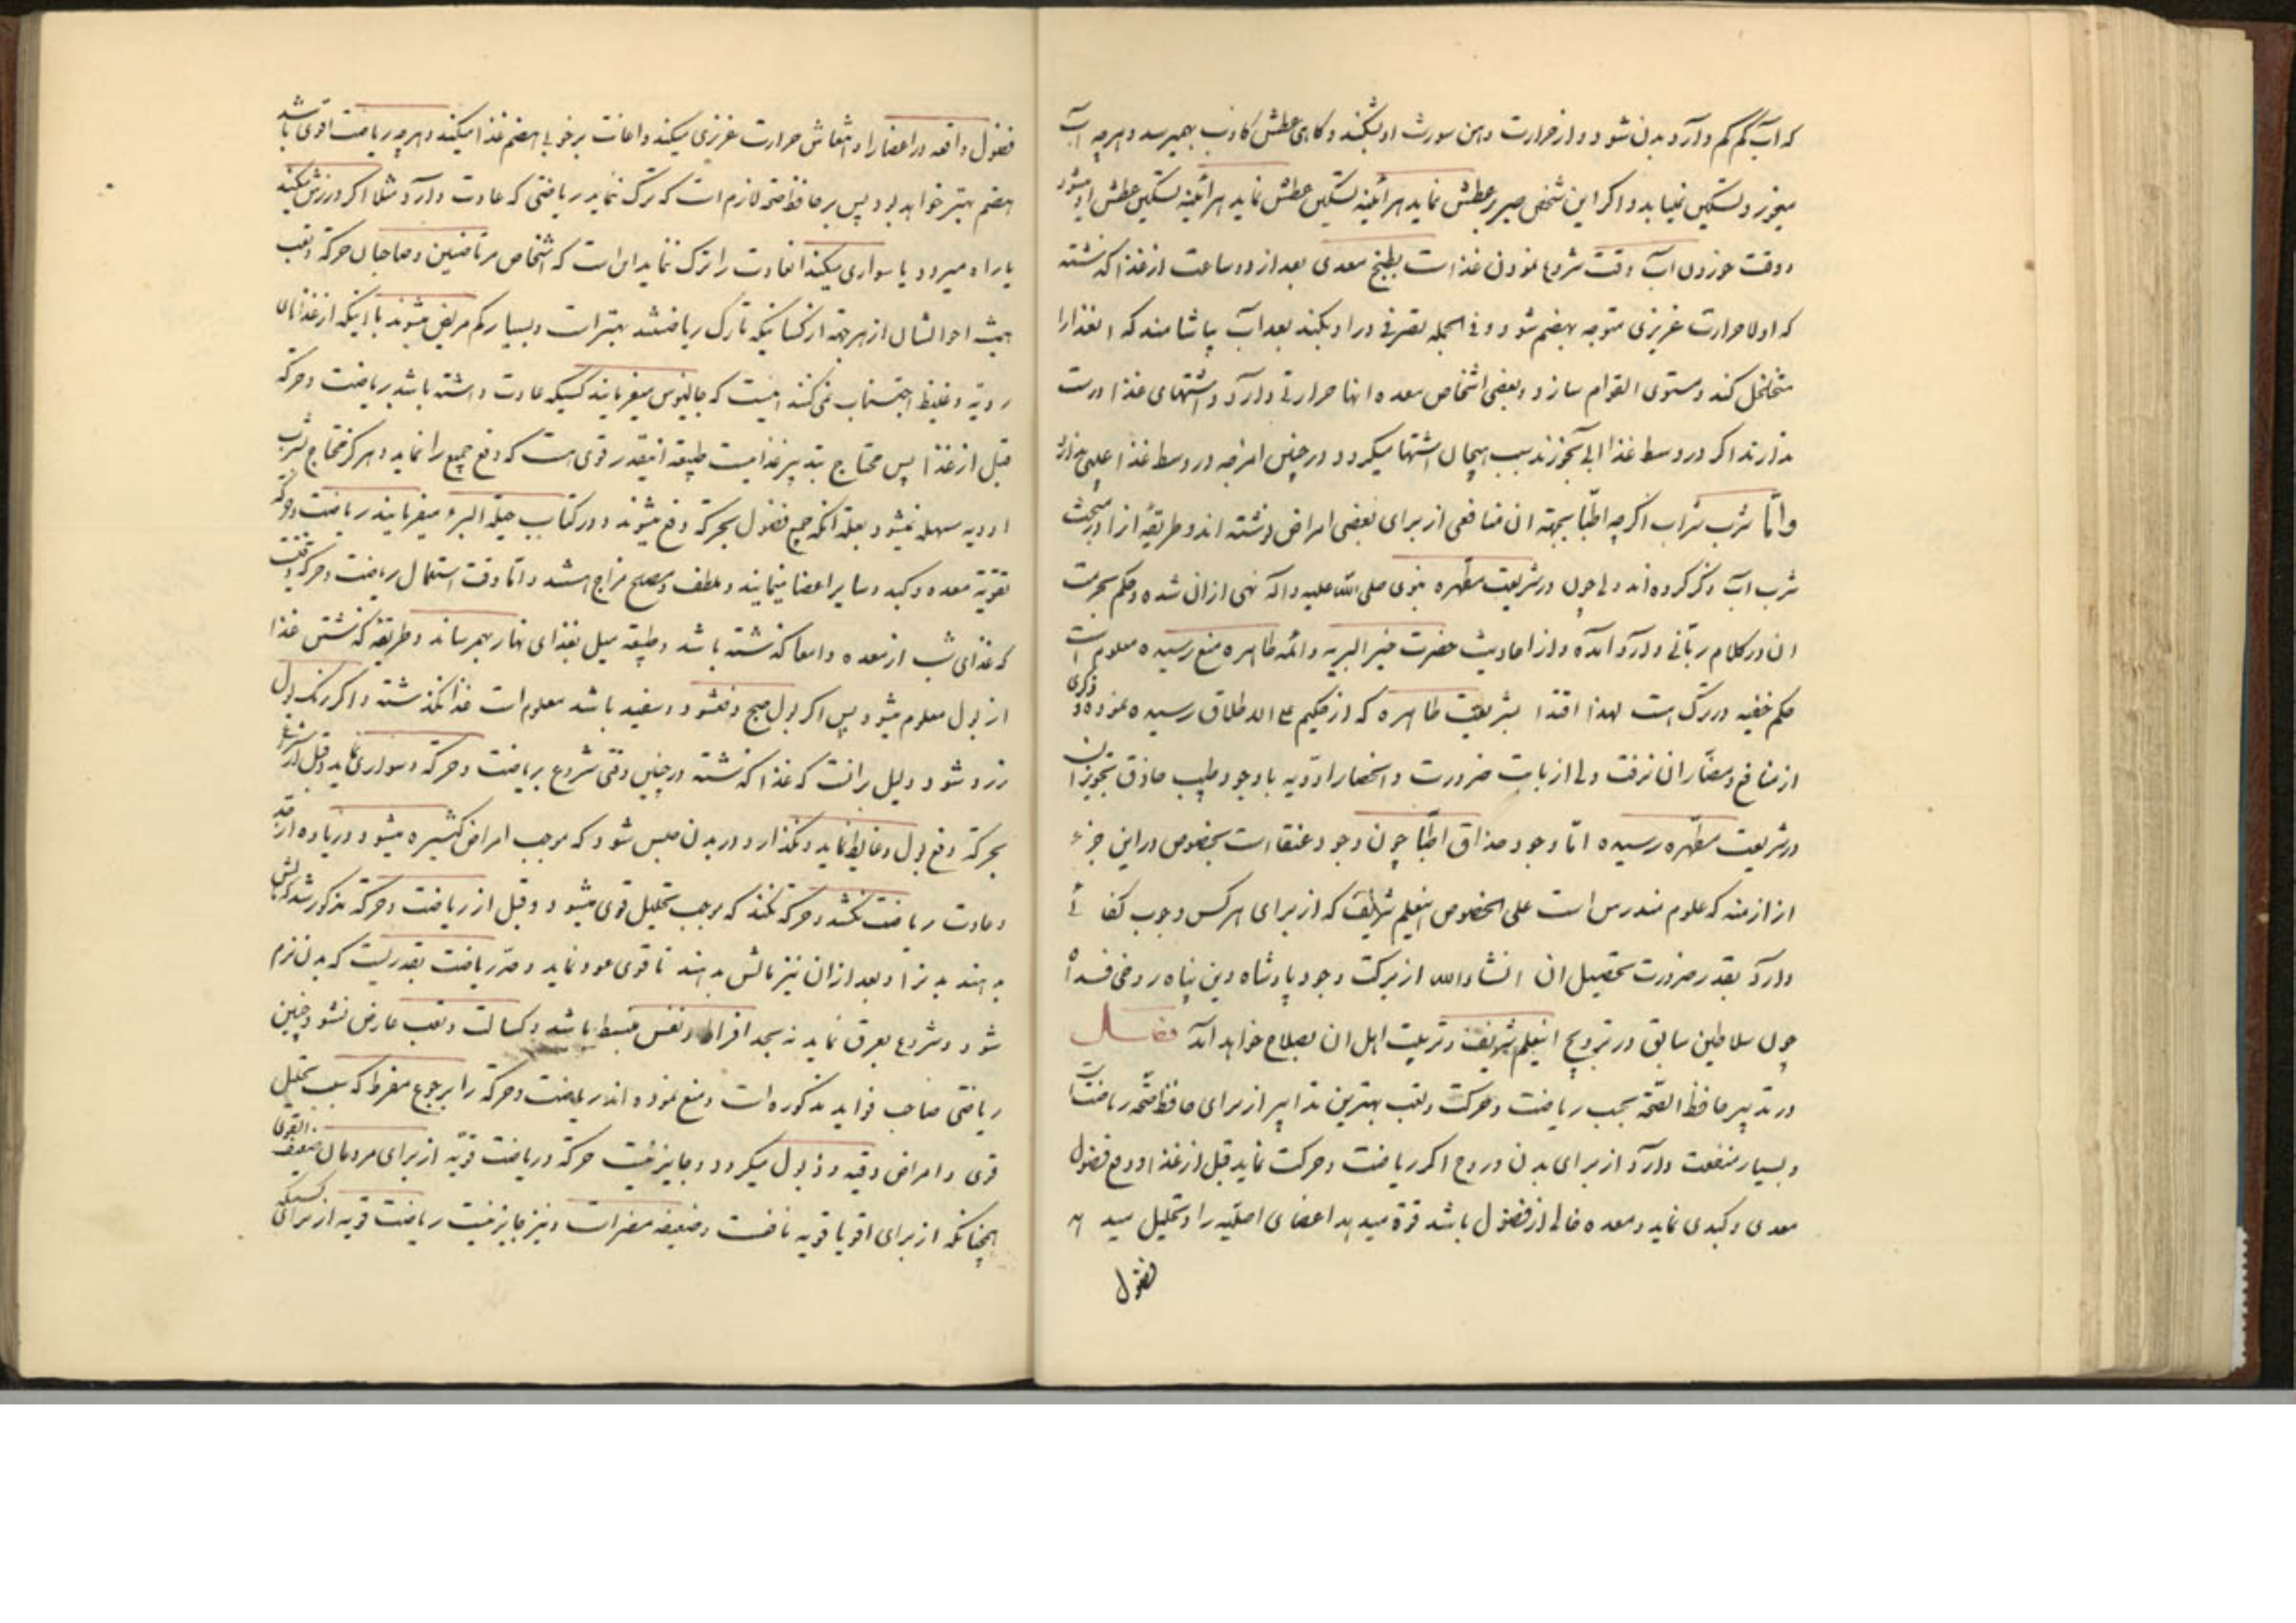 که آب کم کم وارد بدن شود و از حرارت دهن سورت او بشکند و کاهی عطش کاذب بهمیرسد و هرچه آب
میخورد تسکین نمییابد و اکر این شخص صبر بر عطش نماید هر آئینه تسکین عطش نماید هر آئینه تسکین عطش او میشود
و وقت خوردن آب وقت شروع نمودن غذاست بطبخ معدی بعد از دو ساعت از غذا که نشته
که اولا حرارت غریزی متوجه بهضم شود و فی الجمله تصرفی در او بکند بعد آب بیاشامند که انغذا را
متخلخل کند و مستوی القوام سازد و بعضی اشخاص معده انها حرارتی دارد و اشتهای غذا درست
ندارند اکر در وسط غذا ابی بخورند سبب هیجان اشتها میکردد در چنین امزجه در وسط غذا عیبی ندارد
و امّا شرب شراب اکرچه اطبّا بجهة ان منافعی از برای بعضی امراض نوشته اند و طریقهٔ انرا در مبحث
شرب آب ذکر کرده اند ولی چون در شریعت مطهره نبوی صلی الله علیه و اله نهی ازان شده و حکم بحرمت
ان در کلام ربّانی وارد آمده و از احادیث حضرت خیر البریه و ائمه طاهره منع رسیده معلوم است
حکم خفیه در ترک است لهذا اقتدا بشریعت طاهره که از حکیم علی الاطلاق رسیده نموده ذکری
از منافع و مضار ان نرفت ولی از بابت ضرورت و انحصار ادویه با وجود طبیب حاذق تجویز ان
در شریعت مطهره رسیده امّا وجود حذاق اطبّا چون وجود عنقاست بخصوص در این جزء
از ازمنه که علوم مندرس است علی الخصوص اینعلم شریف که از برای هر کس وجوب کفائی
دارد بقدر ضرورت تحصیل ان انشاء الله از برکت وجود پادشاه دین پناه روحی فداه
چون سلاطین سابق در ترویج اینعلم شریف و تربیت اهل ان بصلاح خواهد آمد فصل
در تدبیر حافظ الصحّه بحسب ریاضت و حرکت و تعب بهترین تدابیر از برای حافظ صحّه ریاضت است
و بسیار منفعت دارد از برای بدن و روح اکر ریاضت و حرکت نماید قبل از غذا و دفع فضول
معدی و کبدی نماید و معده خالی از فضول باشد قوة میدهد اعضای اصلیّه را و تحلیل میدهد
فضول
فضول واقعه در اعضا را و انتعاش حرارت غریزی میکند و اعانت بر خوبی هضم غذا میکند و هرچه ریاضت اقوی باشد
هضم بهتر خواهد بود پس بر حافظ صحّة لازم است که ترک ننماید ریاضتی که عادت دارد مثلا اکر ورزش میکند
یا راه میرود یا سواری میکند انعادت را ترک ننماید این است که اشخاص مرتاضین و صاحبان حرکة و تعب
همیشه احوالشان از هر جهة از کسانیکه تارک ریاضتند بهتر است و بسیار کم مریض میشوند با اینکه از غذاهای
ردیّه و غلیظ اجتناب نمی کنند اینست که جالینوس میفرمایند کسیکه عادت داشته باشد بریاضت و حرکة
قبل از غذا پس محتاج بتدبیر غذا نیست طبیعة اینقدر قوی هست که دفع جمیع را نماید و هرکز محتاج بشرب
ادویه مسهله نمیشود بعلة انکه جمیع فضول بحرکة دفع میشوند و در کتاب حیلة البرء میفرمایند ریاضت و حرکة
تقویة معده و کبد و سایر اعضا مینمایند و ملطف و مصلح مزاج اهستند و امّا وقت استعمال ریاضت و حرکة وقتیست
که غذای شب از معده و امعا کذشته باشد و طبیعة میل بغذای نهار بهمرساند و طریقه کذشتن غذا
از بول معلوم میشود پس اکر بول صبح دفعشود و سفید باشد معلوم است غذا نکذشته و اکر رنک بول
زرد شود دلیل برانست که غذا کذشته در چنین وقتی شروع بریاضت و حرکة و سواری نماید و قبل از شروع
بحرکة دفع بول و غایط نماید و نکذارد در بدن حبس شود که موجب امراض کثیره میشود و زیاده از قدر
و عادت ریاضت نکشد و حرکة نکند که موجب تحلیل قوی میشود و قبل از ریاضت و حرکة مذکور شد که مالش
بدهند بدنرا و بعد از ان نیز مالش بدهند تا قوی عود نماید و حدّ ریاضت بقدریست که بدن نرم
شود و شروع بعرق نماید نه بحد افراط و نفس منبسط باشد و کسالت و تعب عارض نشود و چنین
ریاضتی صاحب فواید مذکوره است و منع نموده اند ریاضت و حرکة را بر جوع مفرط که سبب تحلیل
قوی و امراض دقیه و ذبول میکردد و جایز نیست حرکة و ریاضت قویّه از برای مردمان ضعیف القوی
همچنانکه از برای اقویا قویه نافعست و ضعیفه مضر است و نیز جایز نیست ریاضت قویه از برای کسیکه